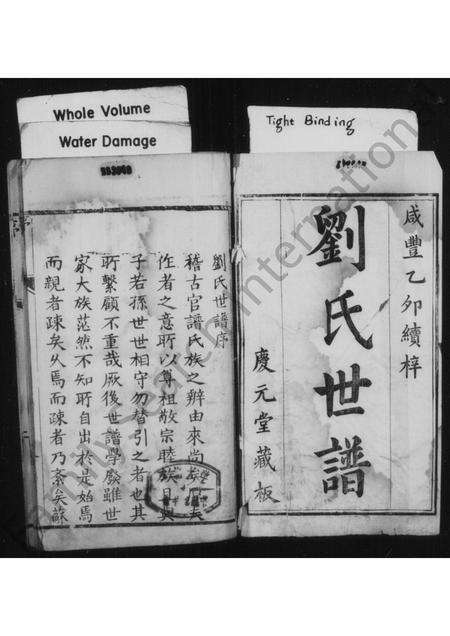 Whole Volume
Water Damage
Tight Binding
咸豐乙卯續梓
劉氏世譜
慶元堂藏板
劉氏世譜序
稽古官譜氏族之辨由來尚矣
作者之意所以尊祖敬宗睦族且與
子若孫世世相守勿替引之者也其
所繫顧不重哉厥後世譜學廢雖世
家大族茫然不知所自出於是始焉
而親者疎矣久焉而疎者乃紊矣蘇